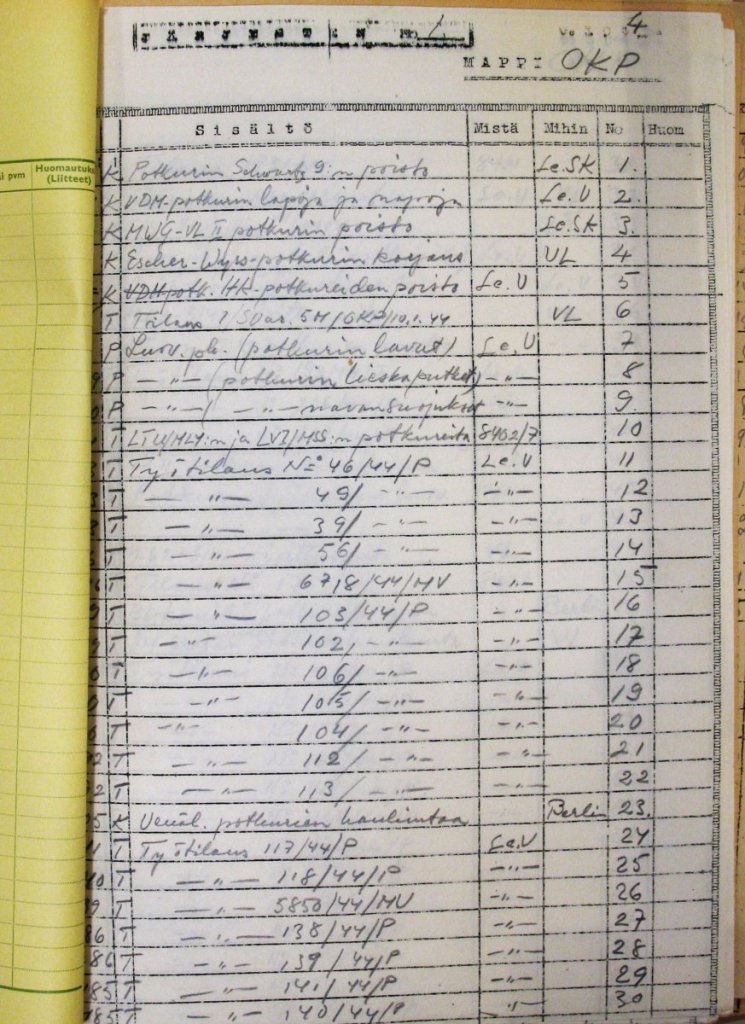 Huomautuksia
i pvm (Liitteet)
1 4
MAPPI OKP
Sisältö Mistä Mihin No Huom
K Potkurin Schwartz 9:n poisto Le.SK 1.
K VDM-potkurin lapoja ja napoja Le.U 2.
K MWG-VL II potkurin poisto Le.SK 3.
K Escher-Wyss-potkurin korjaus VL 4
K VDM potk. HK-potkureiden poisto Le.U 5
T Tilaus VL 6
P Luov. pk. (potkurin lavat) Le.U 7
P —"— (potkurin lieskaputket) -"- 8
P —"— ( —"— navansuojukset -"- 9.
T ja potkureita 8402/7 10
T Työtilaus No 46/44/P Le.U 11
T —"— 49/ -"- -"- 12
T —"— 39/ -"- -"- 13
T —"— 56/ -"- -"- 14
T —"— 6718/44/MV -"- 15
T —"— 103/44/P -"- 16
T —"— 102, -"- -"- 17
T —"— 106/ -"- -"- 18
T —"— 105/ -"- -"- 19
T —"— 104/ -"- -"- 20
T —"— 112/ -"- -"- 21
T —"— 113/ -"- -"- 22
K Venäl. potkurien Berlin 23.
T Työtilaus 117/44/P Le.U 24
T —"— 118/44/P -"- 25
T —"— 5850/44/MV -"- 26
86 T —"— 138/44/P -"- 27
86 T —"— 139/44/P -"- 28
185 T —"— 141/44/P -"- 29
185 T —"— 140/44/P -"- 30